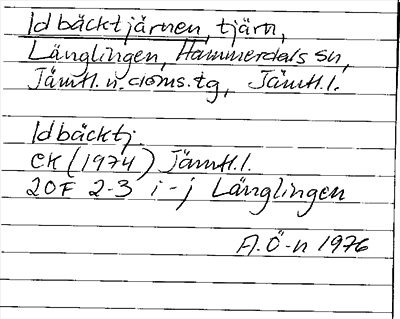 Idbäcktjärnen, tjärn,
Länglingen, Hammerdals sn,
Jämtl.n.doms.tg, Jämtl.l.
Idbäcktj.
EK (1974) Jämtl.l.
20F 2-3 i-j Länglingen
A.Ö-n 1976